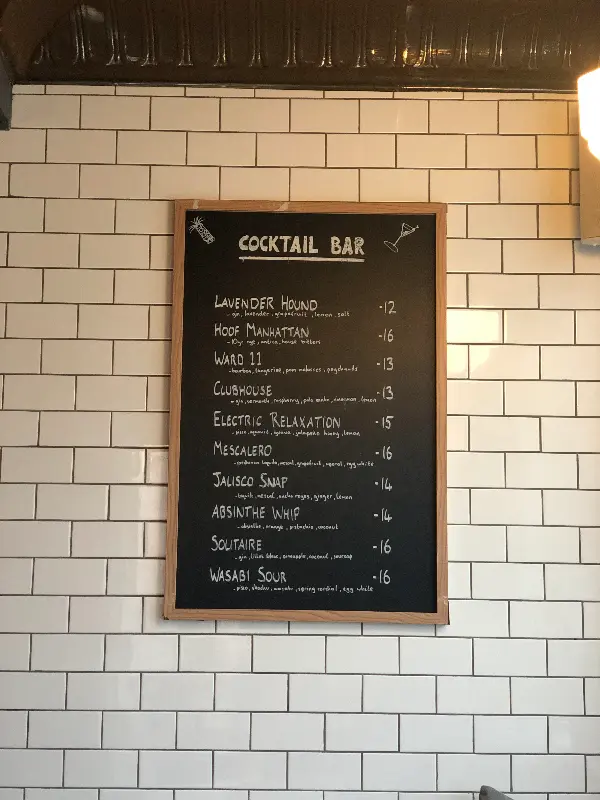 COCKTAIL BAR
LAVENDER HOUND -12
- gin, lavender, grapefruit, lemon, salt
HOOF MANHATTAN -16
- 10yr rye, antica, house bitters
WARD 11 -13
- bourbon, tangerine, pom molasses, peychauds
CLUBHOUSE -13
- gin, vermouth, raspberry, palo santo, cinnamon, lemon
ELECTRIC RELAXATION -15
- pisco, aquavit, jalapeño honey, lemon
MESCALERO -16
mezcal, grapefruit, egg white
JALISCO SNAP -14
ginger, lemon
ABSINTHE WHIP -14
- absinthe, orange, pistachio, coconut
SOLITAIRE -16
- gin, pineapple, coconut, soursop
WASABI SOUR -16
- pisco, wasabi, spring cordial, egg white